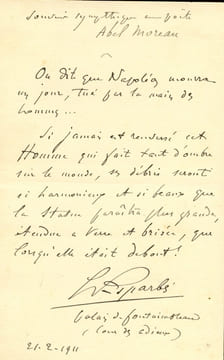 Souvenir sympathique au poète
Abel Moreau
On dit que Napoléon mourra
un jour, tué par la main des
hommes...
Si jamais est renversé cet
Homme qui fait tant d'ombre
sur le monde, ses débris seront
si harmonieux et si beaux que
la Statue paraîtra plus grande,
étendue à terre et brisée, que
lorsqu'elle était debout!
d'Esparbès
Palais de Fontainebleau
(Cour des adieux)
21-2-1911